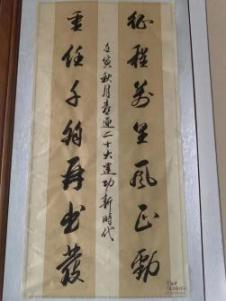 征程万里风正劲
壬寅秋月喜迎二十大建功新時代
重任千鈞再出發